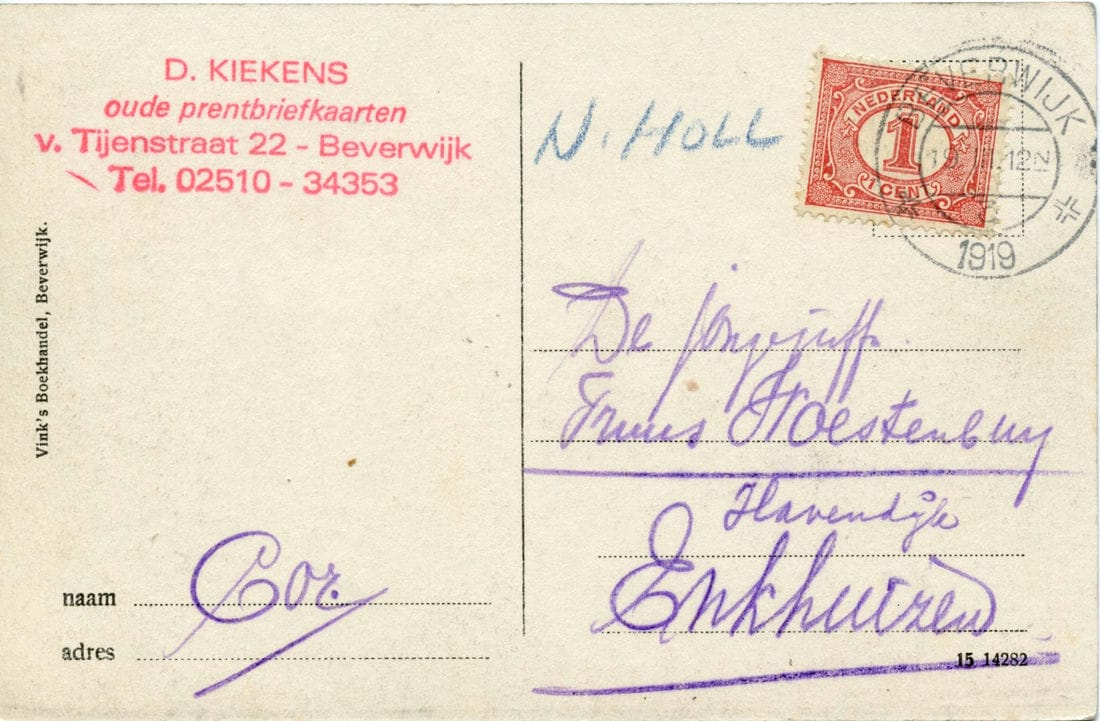 D. KIEKENS
oude prentbriefkaarten
v. Tijenstraat 22 - Beverwijk
Tel. 02510 - 34353
Vink's Boekhandel, Beverwijk.
N. HOLL
NEDERLAND
1
1 CENT
BEVERWIJK
12N
1919
De jongejuffr.
Truus Hoestenburg
Havendijk
Enkhuizen
naam Cor.
adres
15 14282